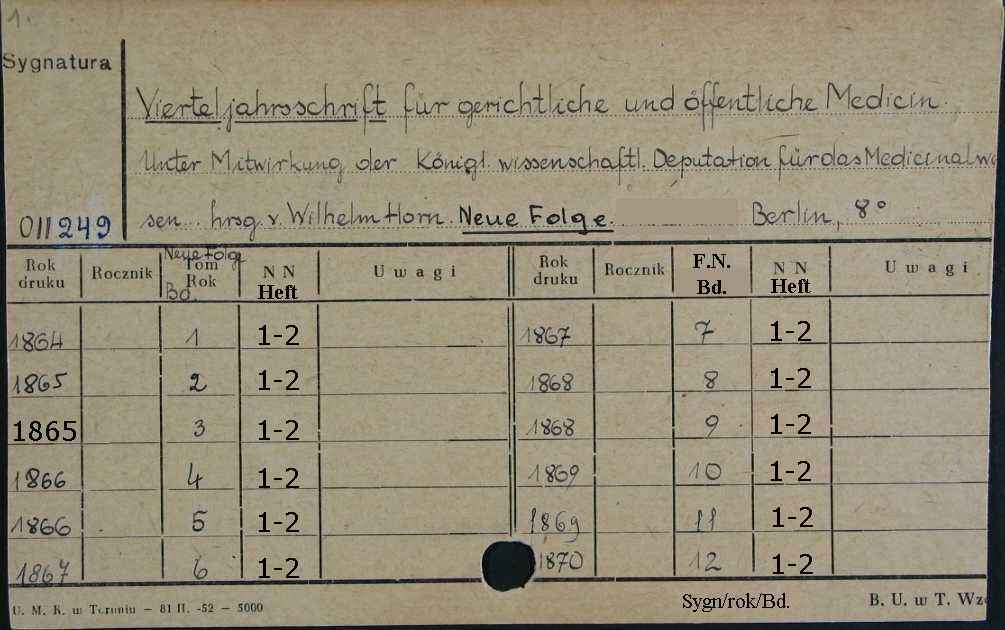 1.
Sygnatura
Vierteljahrsschrift für gerichtliche und öffentliche Medicin.
Unter Mitwirkung der Königl. wissenschaftl. Deputation für das Medicinalwe
011249 sen. hrsg. v. Wilhelm Horn. Neue Folge. Berlin, 8°
Rok druku Rocznik Neue Folge Tom Rok Bd. N N Heft Uwagi Rok druku Rocznik F.N. Bd. N N Heft Uwagi
1864 1 1-2 1867 7 1-2
1865 2 1-2 1868 8 1-2
1865 3 1-2 1868 9 1-2
1866 4 1-2 1869 10 1-2
1866 5 1-2 1869 11 1-2
1867 6 1-2 1870 12 1-2
U. M. K. w Toruniu — 81 II. -52 — 5000 Sygn/rok/Bd. B. U. w T. Wzó